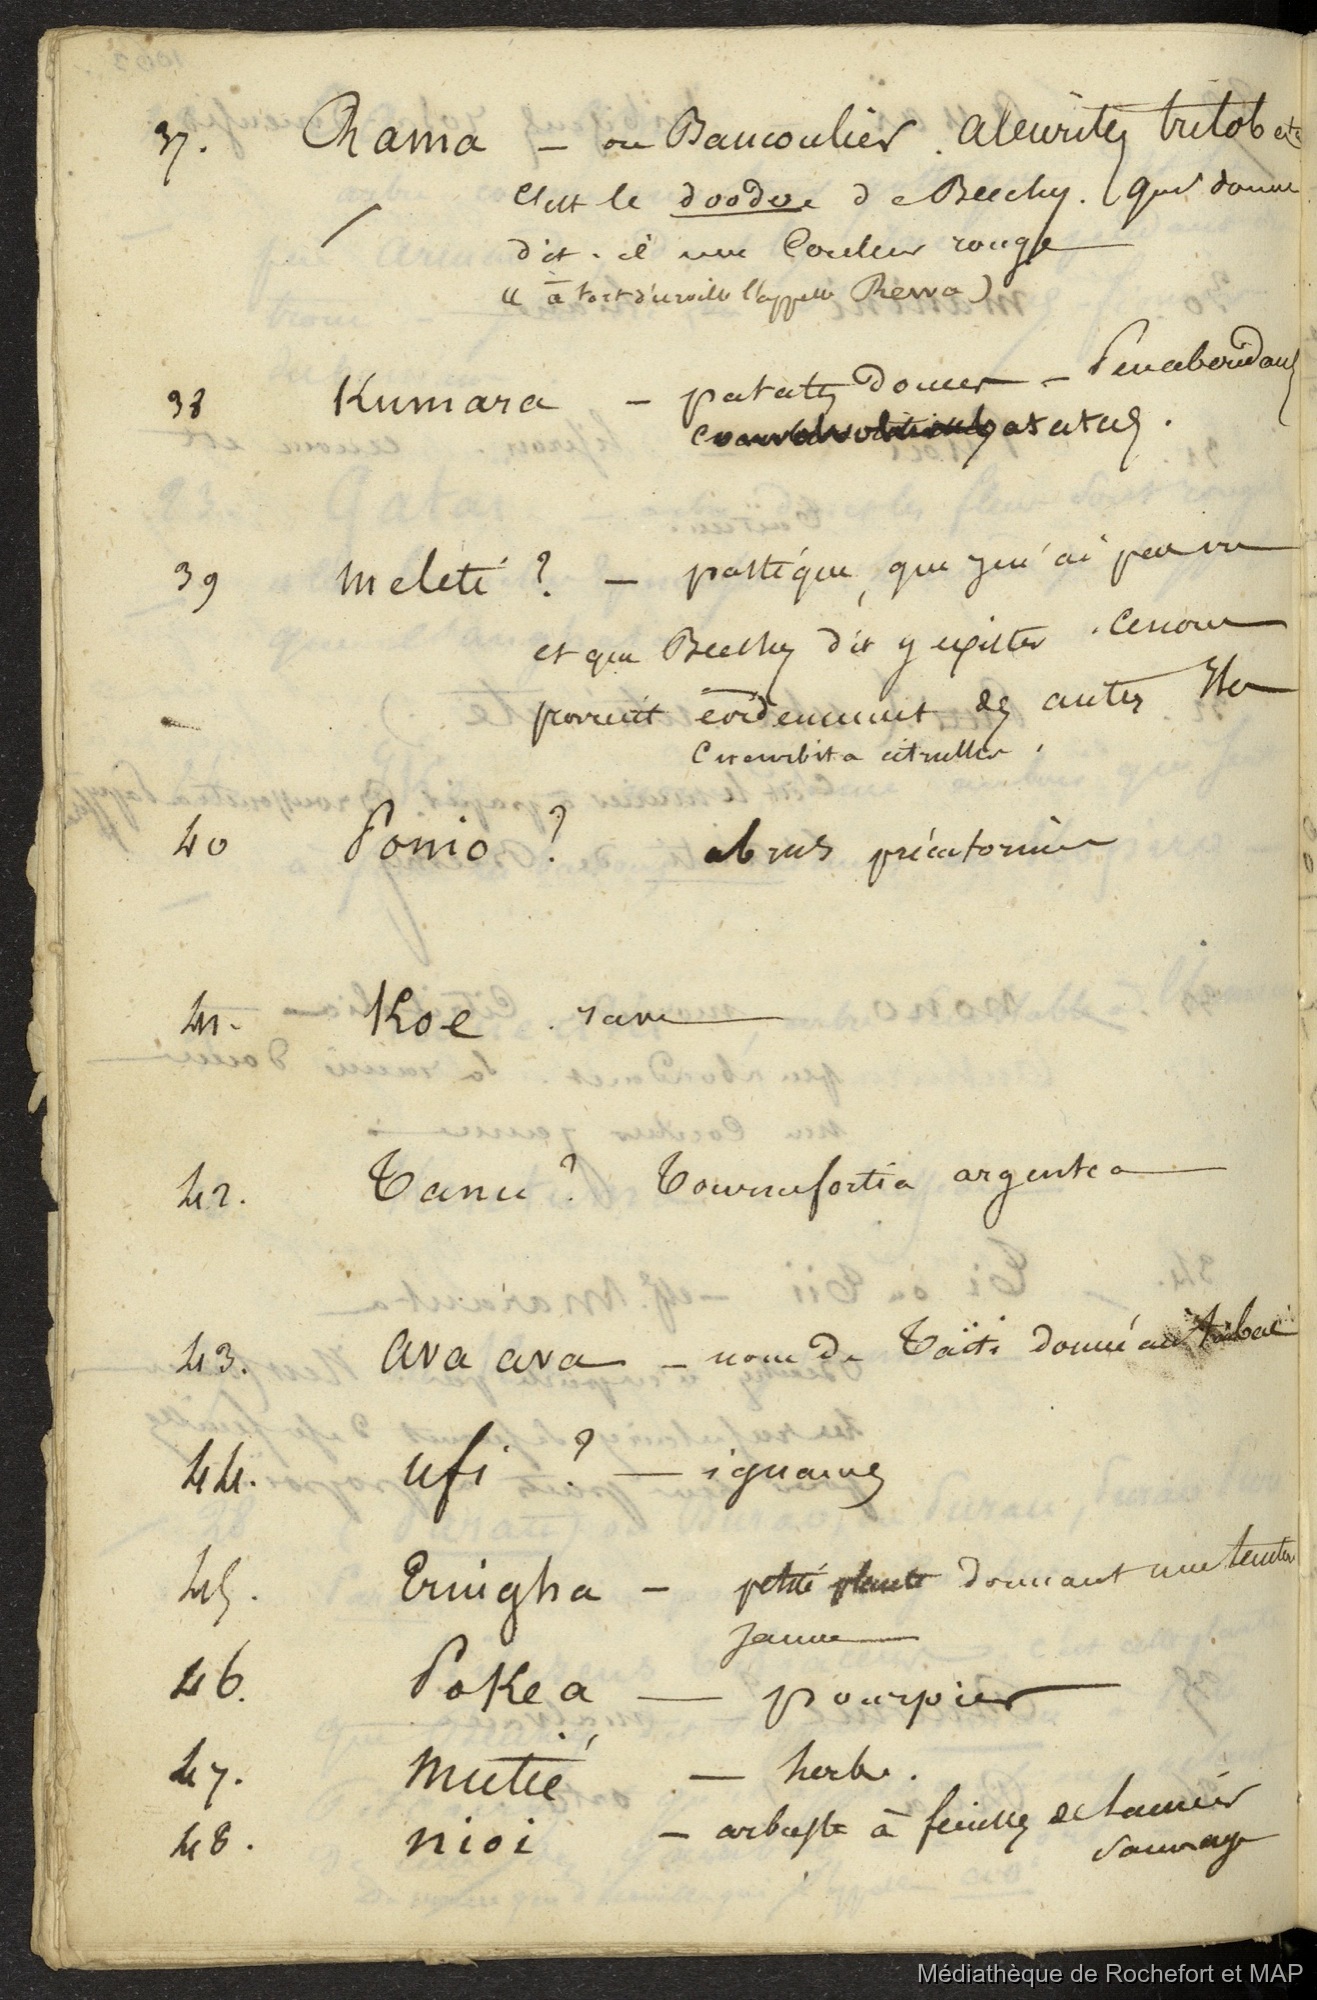 37. Rama — ou Bancoulier. aleurites triloba etc
C'est le doodoe de Beechy. (qui donne
dit-il une Couleur rouge
(( à tort d'urville l'appelle Rewa)
38 Kumara — patates Douces — Peu abondans
convolvulus batatas.
39 Meleti ? — pastèque, que je n'ai pas vu
et que Beechy dit y exister. Ce nom
provient évidemment des autres Iles
Cucurbita citrullus.
40 Ponio ? abrus précatorius
41. Koe . rare
42. Tanu ? Tournefortia argentea
43. ava ava — nom de Taïti donné au tabac
44. ufi ? — ignames
45. Eruigha — petite plante donnant une teinture
Jaune
46. Pokea — pourpier
47. Mutié — herbe.
48. nioi — arbuste à feuilles de laurier
Sauvage
Médiathèque de Rochefort et MAP